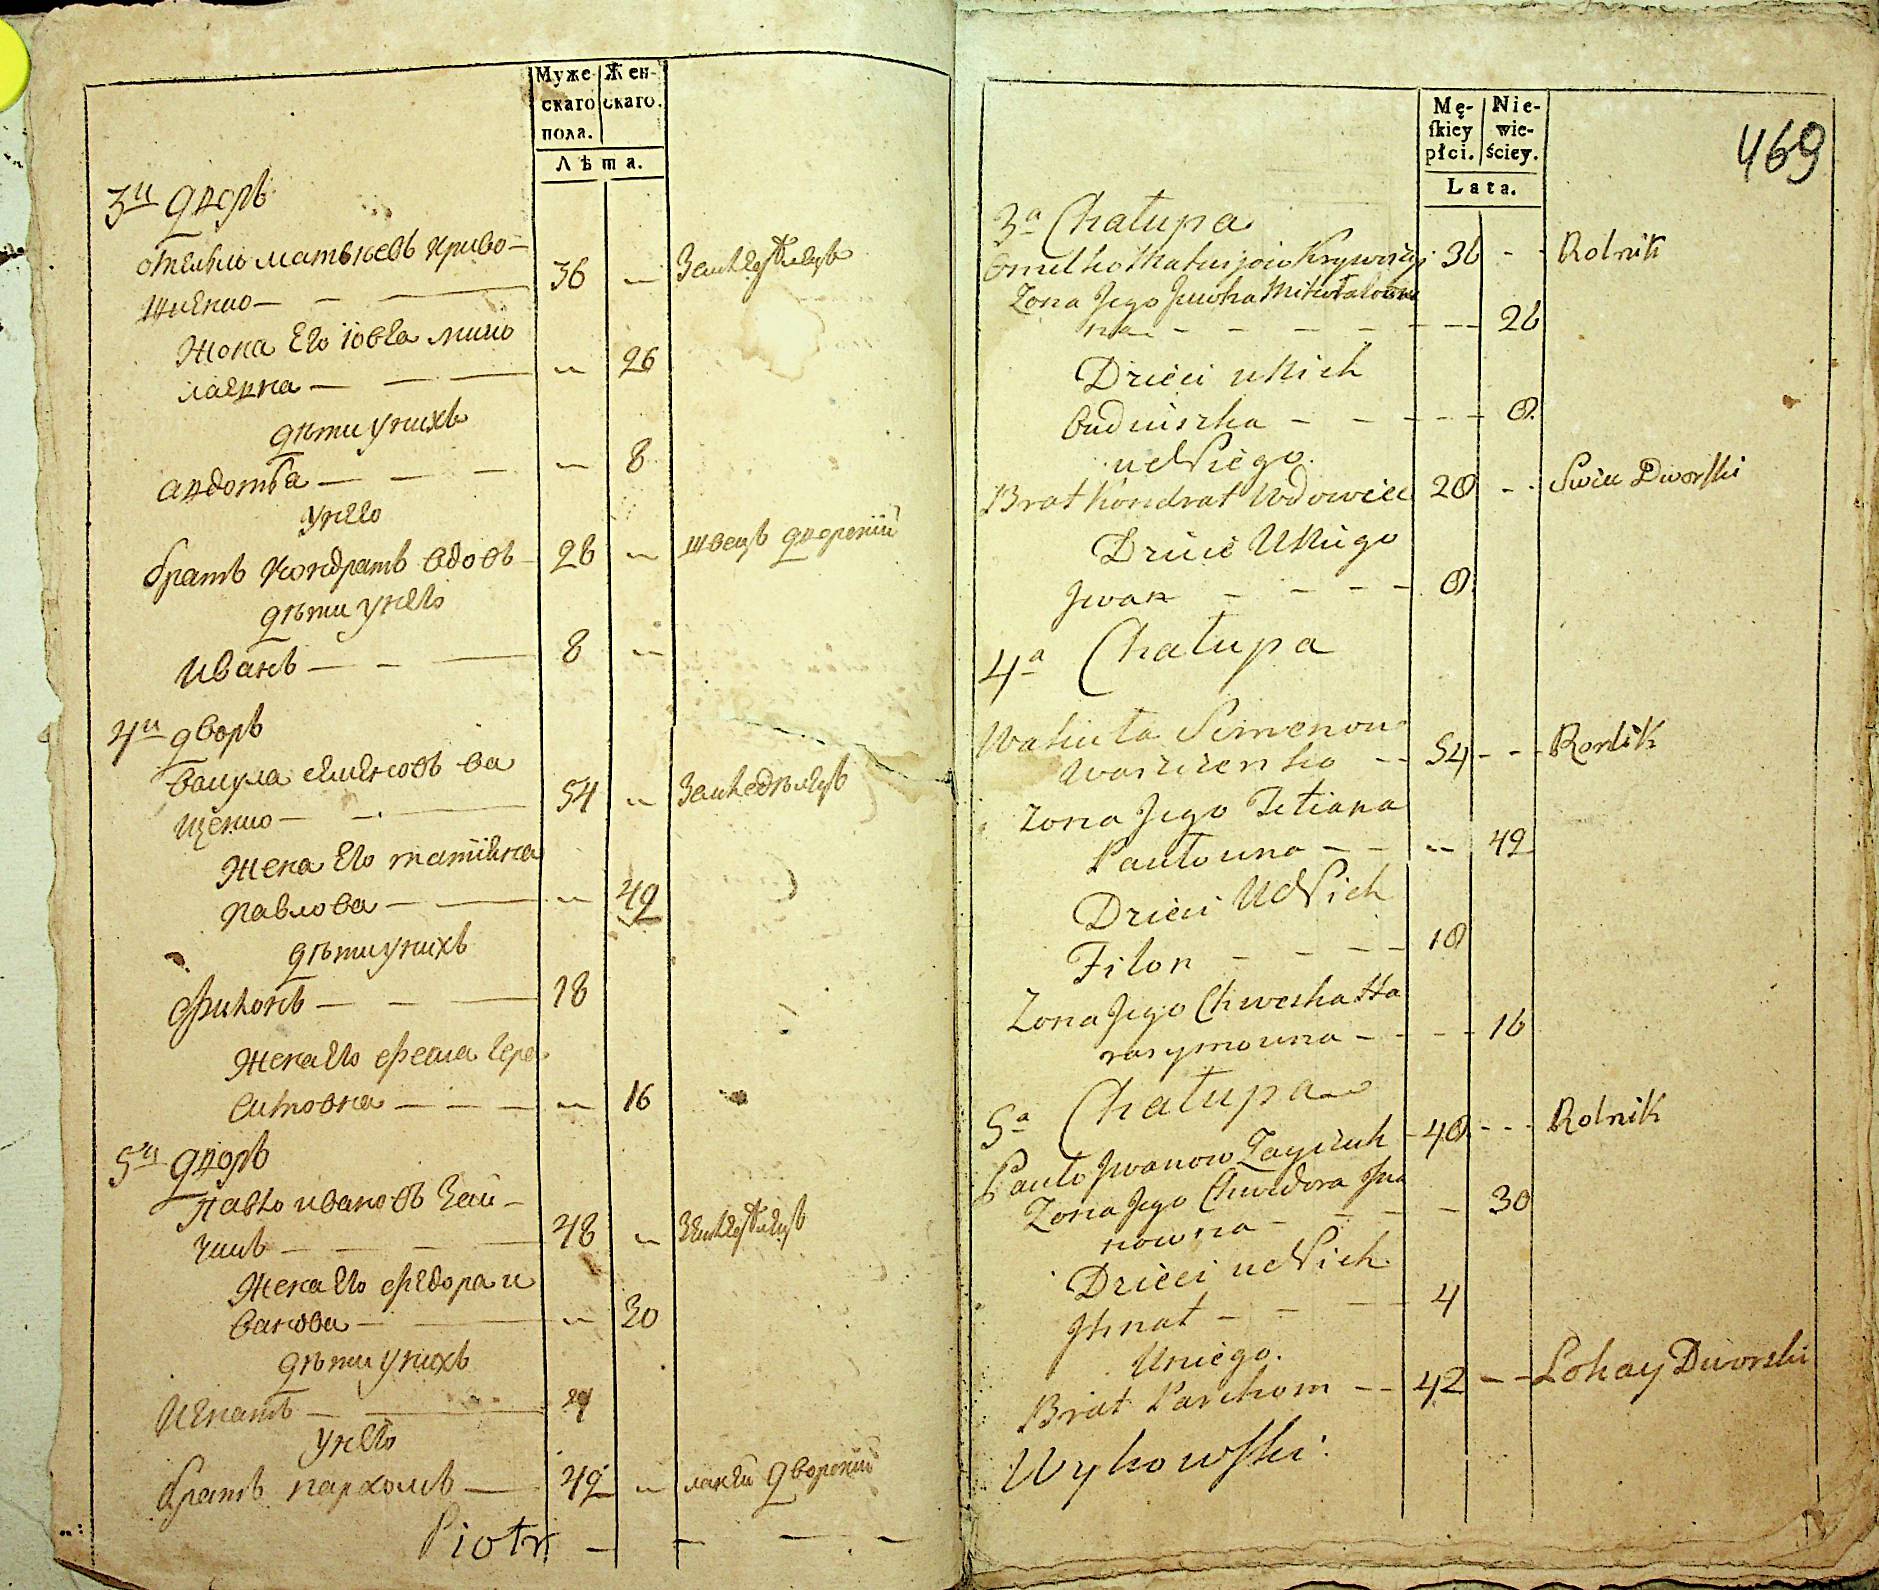 Муже-
скаго
пола.
Жен-
скаго.
Лѣта.
3й дворъ
Омелко матвѣевъ криво-
шиенко — — — 36 — Земледѣлецъ
Жона Его іовга мико
лаевна — — — — 26
дѣти унихъ
авдотья — — — — 8
унего
братъ кондратъ вдовъ — 28 — швецъ дворский
дѣти унего
иванъ — — — 8 —
4й дворъ
вакула семеновъ ва
щенко — — — 54 — Земледѣлецъ
Жена Его татияна
павлова — — — 49
дѣти унихъ
филонъ — — — 18
Жена Его феска гера
симовна — — — — 16
5й дворъ
павло ивановъ Зай-
чикъ — — — 48 — Земледѣлецъ
Жена Его федора и
ванова — — — 30
дѣти унихъ
игнатъ — — 4
унего
братъ пархомъ — 42 — лакей дворский
Piotr — — — —
Mę-
skiey
płci.
Nie-
wie-
ściey.
Lata.
469
3a Chałupa
Omelko Matwijow Krywoszyi 36 - - Rolnik
Zona Jego Juwha Mikołaiow
na - - - - - - - 26
Dzieci uNich
Owdoiszka - - - - - 8.
udNiego.
Brat Kondrat Wdowiec 28 - - Swiec Dworski
Dzieci UNiego
Jwan - - - - 8.
4a Chałupa
Wakuła Simenow
Waszczenko - - 54 - - - Ronlik
Zona Jego Tetiana
Pawłowna - - -- 49
Dzieci UdNich
Fiłon - - - - 18
Zona Jego Chweska Ha
rasymowna - - - - 16
5a Chałupa
Pawło Jwanow Zayczuk - 48 - - - Rolnik
Zona Jego Chwedora Jwa
nowna - - - - - 30
Dzieci udNich
Jhnat - - - - 4
Uniego.
Brat Parchom - - 42 - - Lokay Dworski
Wykowski.